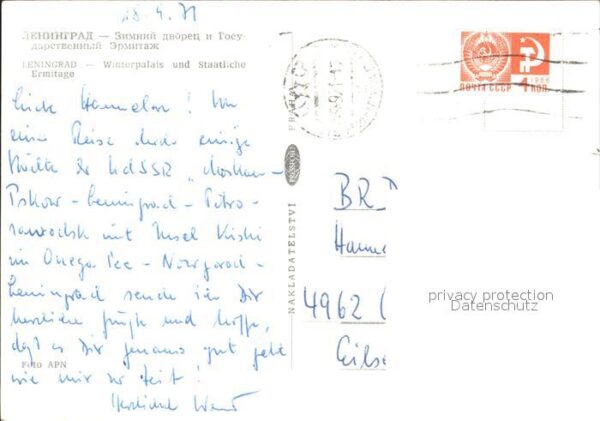 ЛЕНИНГРАД — Зимний дворец и Госу-
дарственный Эрмитаж
LENINGRAD — Winterpalais und Staatliche
Ermitage
Hannelore! Von
einer Reise durch einige
Städte der UdSSR „Moskau-
Pskow-Leningrad-Petro-
sawodsk mit Insel Kishi
im Onega See - Nowgorod-
Leningrad sende ich Dir
herzliche Grüße und hoffe,
daß es Dir genauso gut geht
wie mir zur Zeit!
Herzlichst
Foto APN
NAKLADATELSTVÍ
PRESSFOTO
ПОЧТА СССР 4 КОП.
1966
BR
Hanne
4962
Eilse
privacy protection
Datenschutz